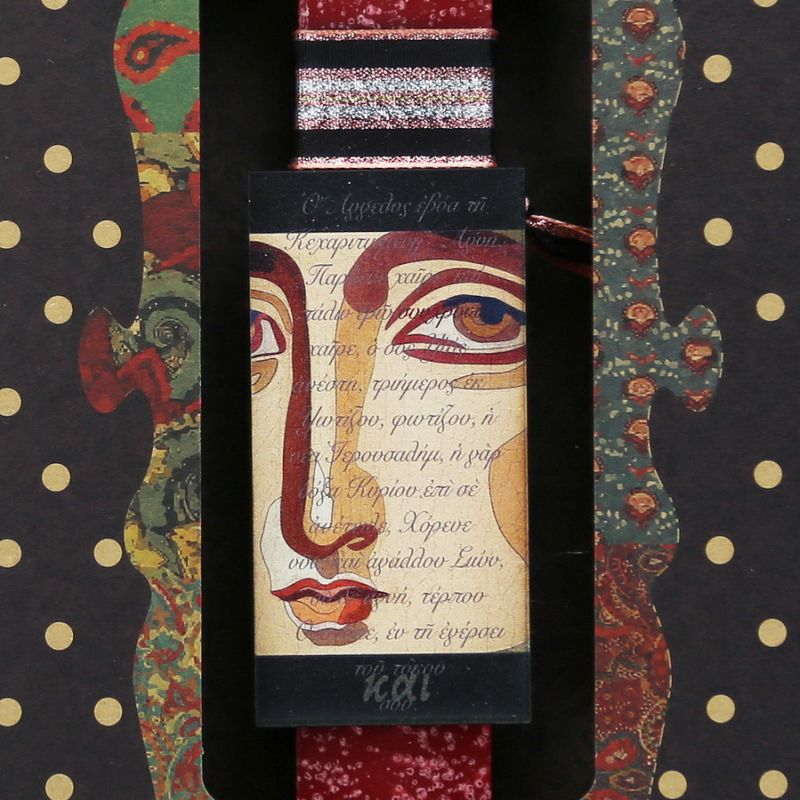 Ὁ Ἄγγελος ἐβόα τῇ
Κεχαριτωμένῃ· Ἁγνὴ
χαῖρε, καὶ
πάλιν ἐρῶ
χαῖρε, ὁ σὸς Υἱὸς
ἀνέστη, τριήμερος ἐκ
Φωτίζου, φωτίζου, ἡ
νέα Ἱερουσαλήμ, ἡ γὰρ
δόξα Κυρίου ἐπὶ σὲ
ἀνέτειλε, Χόρευε
νῦν καὶ ἀγάλλου Σιών,
ἁγνή, τέρπου
ἐν τῇ ἐγέρσει
τοῦ τόκου
σου.
και